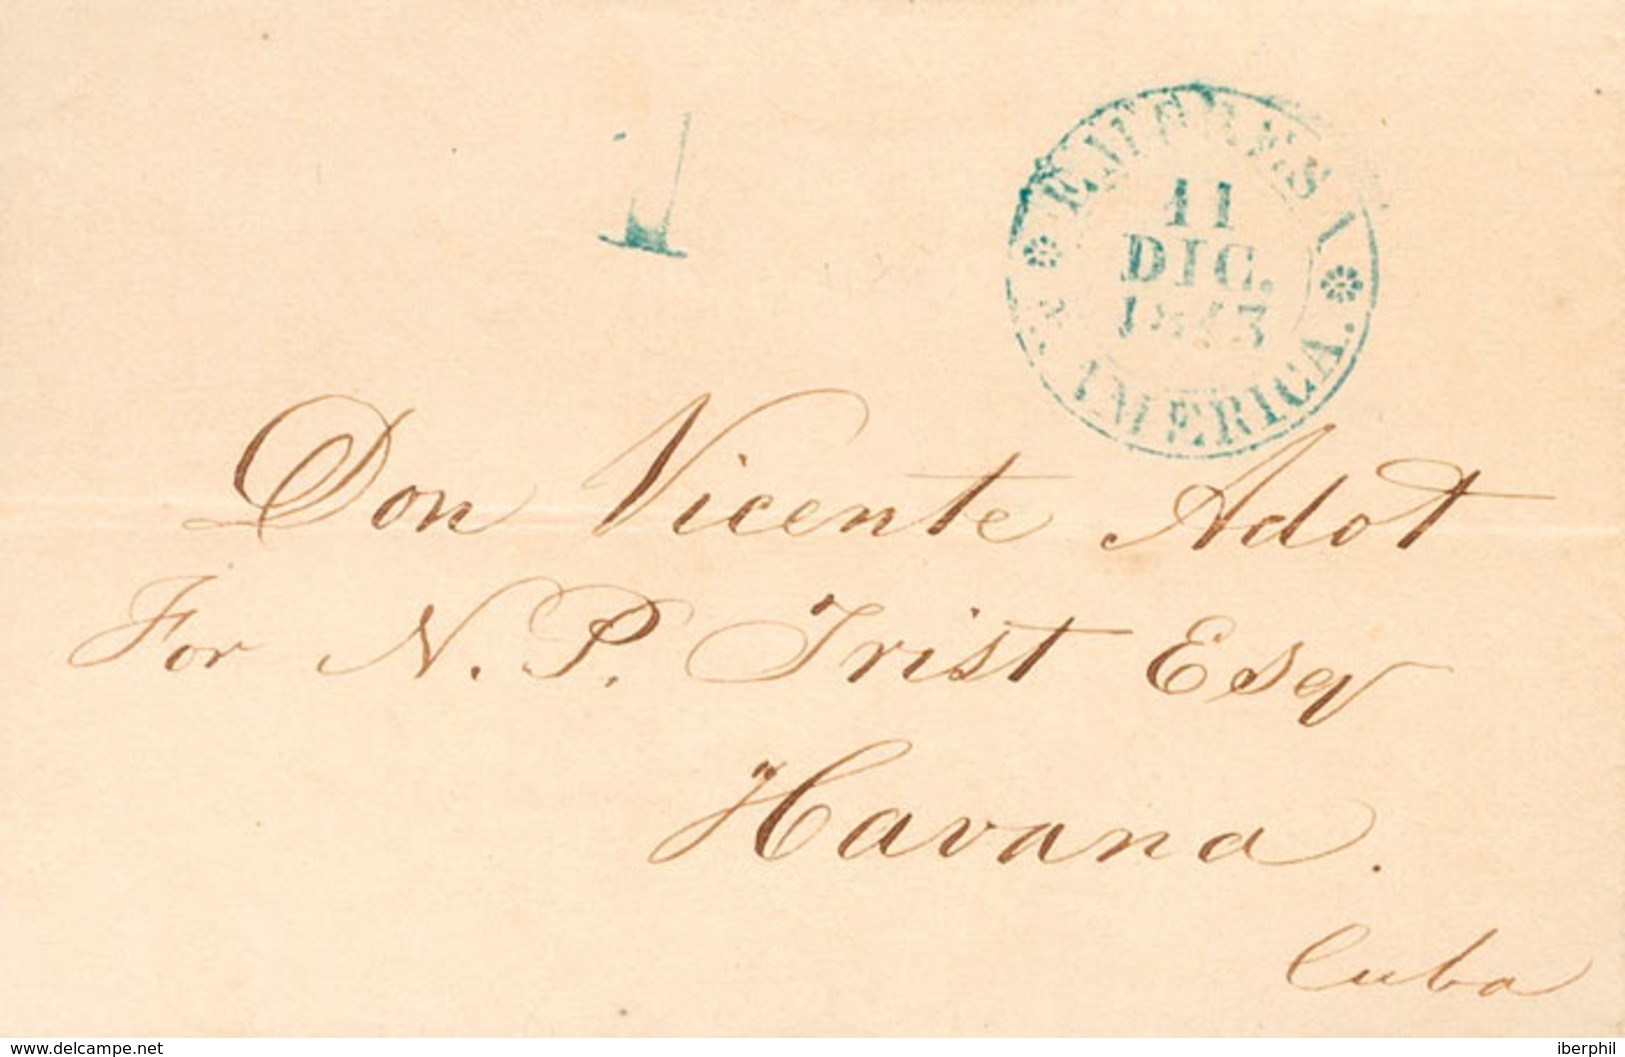 1
EMPRESA
11
DIC.
1843
N. AMERICA.
Don Vicente Adot
For N. P. Trist Esqr
Havana.
Cuba
www.delcampe.net
iberphil